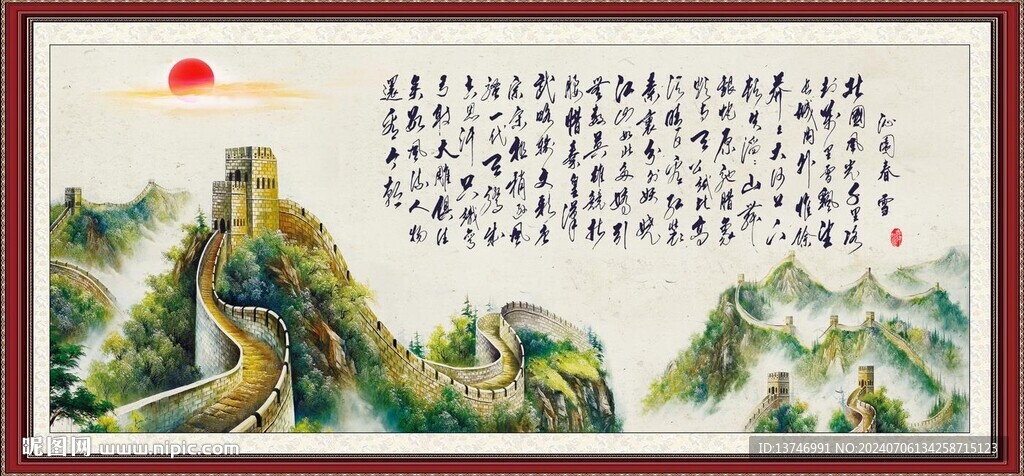 沁園春 雪
北國風光千里冰
封萬里雪飄望
長城内外惟餘
莽々大河上下
頓失滔々山舞
銀蛇原馳腊象
欲与天公試比高
須晴日看红裝
素裹分外妖嬈
江山如此多嬌引
無數英雄競折
腰惜秦皇漢
武略輸文彩唐
宗宋祖稍逊風
騷一代天驕成
吉思汗只識彎
弓射大雕俱往
矣數風流人物
還看今朝
昵图网 www.nipic.com
ID:13746991 NO:20240706134258715123